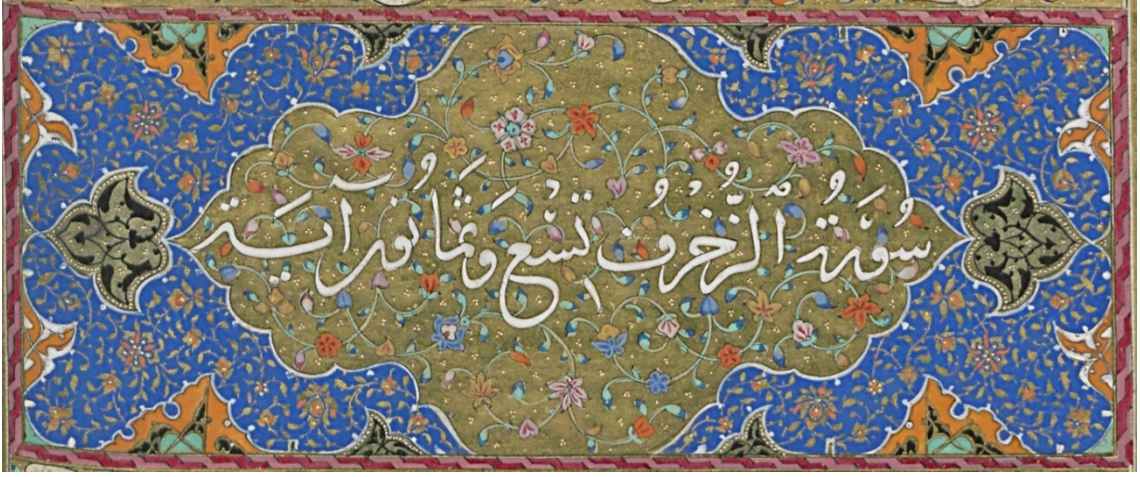 سُورَةُ الزُّخْرُفِ تِسْعٌ وَثَمَانُونَ آيَة